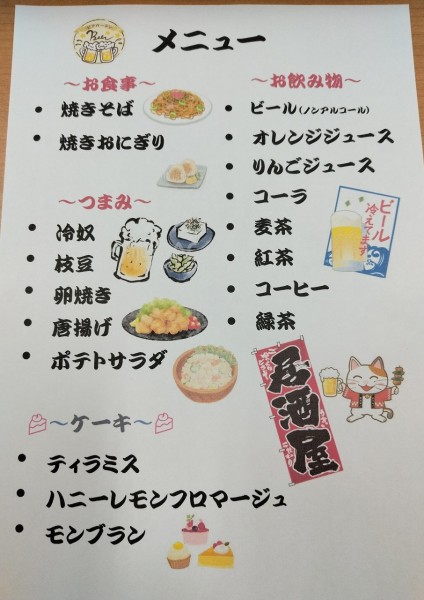 Beer
メニュー
～お食事～
・ 焼きそば
・ 焼きおにぎり
～つまみ～
・ 冷奴
・ 枝豆
・ 卵焼き
・ 唐揚げ
・ ポテトサラダ
～ケーキ～
・ ティラミス
・ ハニーレモンフロマージュ
・ モンブラン
～お飲み物～
・ ビール(ノンアルコール)
・ オレンジジュース
・ りんごジュース
・ コーラ
・ 麦茶
・ 紅茶
・ コーヒー
・ 緑茶
ビール
冷えてます
居酒屋